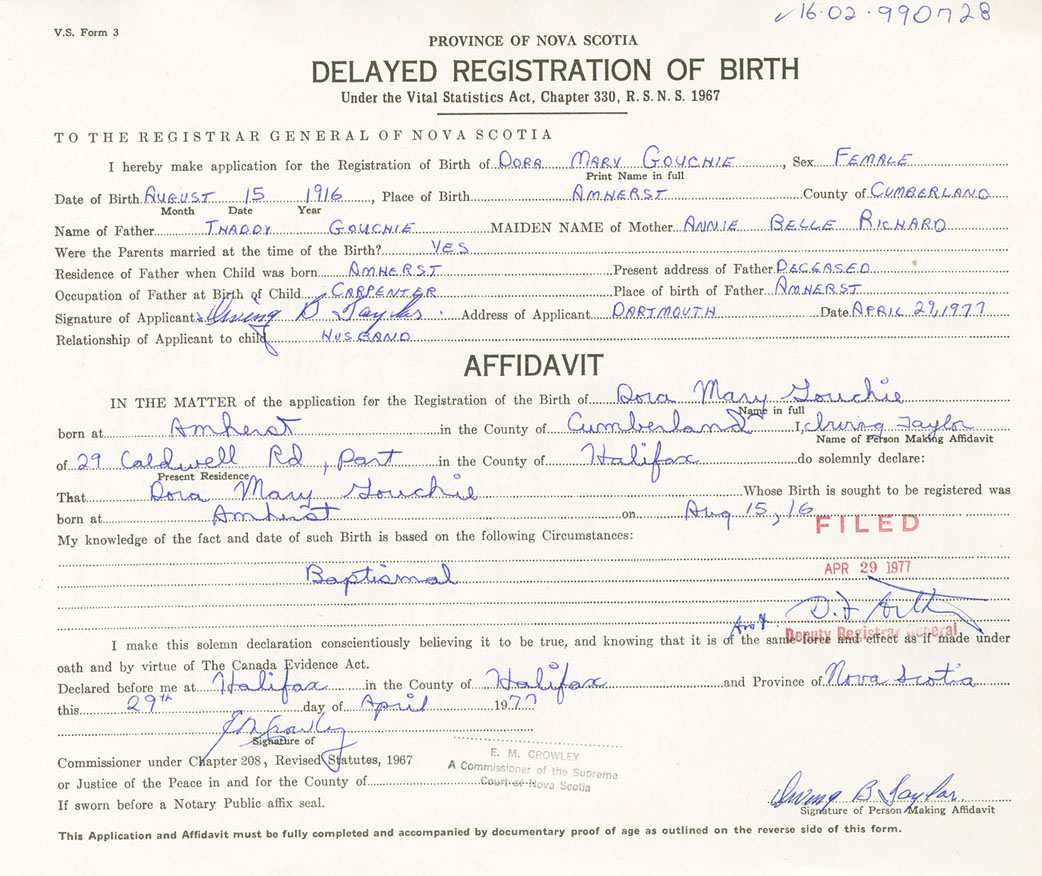 ✓16-02-990728
V.S. Form 3
PROVINCE OF NOVA SCOTIA
DELAYED REGISTRATION OF BIRTH
Under the Vital Statistics Act, Chapter 330, R. S. N. S. 1967
TO THE REGISTRAR GENERAL OF NOVA SCOTIA
I hereby make application for the Registration of Birth of DORA MARY GOUCHIE, Sex FEMALE
Print Name in full
Date of Birth AUGUST 15 1916, Place of Birth AMHERST County of CUMBERLAND
Month Date Year
Name of Father THADDY GOUCHIE MAIDEN NAME of Mother ANNIE BELLE RICHARD
Were the Parents married at the time of the Birth? YES
Residence of Father when Child was born AMHERST Present address of Father DECEASED
Occupation of Father at Birth of Child CARPENTER Place of birth of Father AMHERST
Signature of Applicant Irving B Taylor. Address of Applicant DARTMOUTH Date APRIL 29, 1977
Relationship of Applicant to child HUSBAND
AFFIDAVIT
IN THE MATTER of the application for the Registration of the Birth of Dora Mary Gouchie
Name in full
born at Amherst in the County of Cumberland I, Irving Taylor
Name of Person Making Affidavit
of 29 Caldwell Rd, Dart in the County of Halifax do solemnly declare:
Present Residence
That Dora Mary Gouchie Whose Birth is sought to be registered was
born at Amherst on Aug 15, 16
FILED
My knowledge of the fact and date of such Birth is based on the following Circumstances:
APR 29 1977
Baptismal
Deputy Registrar General
I make this solemn declaration conscientiously believing it to be true, and knowing that it is of the same force and effect as if made under
oath and by virtue of The Canada Evidence Act.
Declared before me at Halifax in the County of Halifax and Province of Nova Scotia
this 29th day of April 1977
E M Crowley
Signature of
Commissioner under Chapter 208, Revised Statutes, 1967
E. M. CROWLEY
A Commissioner of the Supreme
Court of Nova Scotia
or Justice of the Peace in and for the County of
Irving B Taylor.
Signature of Person Making Affidavit
If sworn before a Notary Public affix seal.
This Application and Affidavit must be fully completed and accompanied by documentary proof of age as outlined on the reverse side of this form.